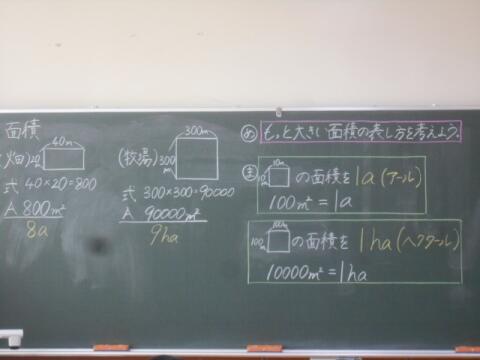 面積
(畑)
40m
20
式 40×20=800
A 800m²
8a
(牧場)
300m
300m
式 300×300=90000
A 90000m²
9ha
め もっと大きい面積の表し方を考えよう。
ま
10m
10
の面積を 1a(アール)
100m²=1a
100m
100
の面積を 1ha(ヘクタール)
10000m²=1ha